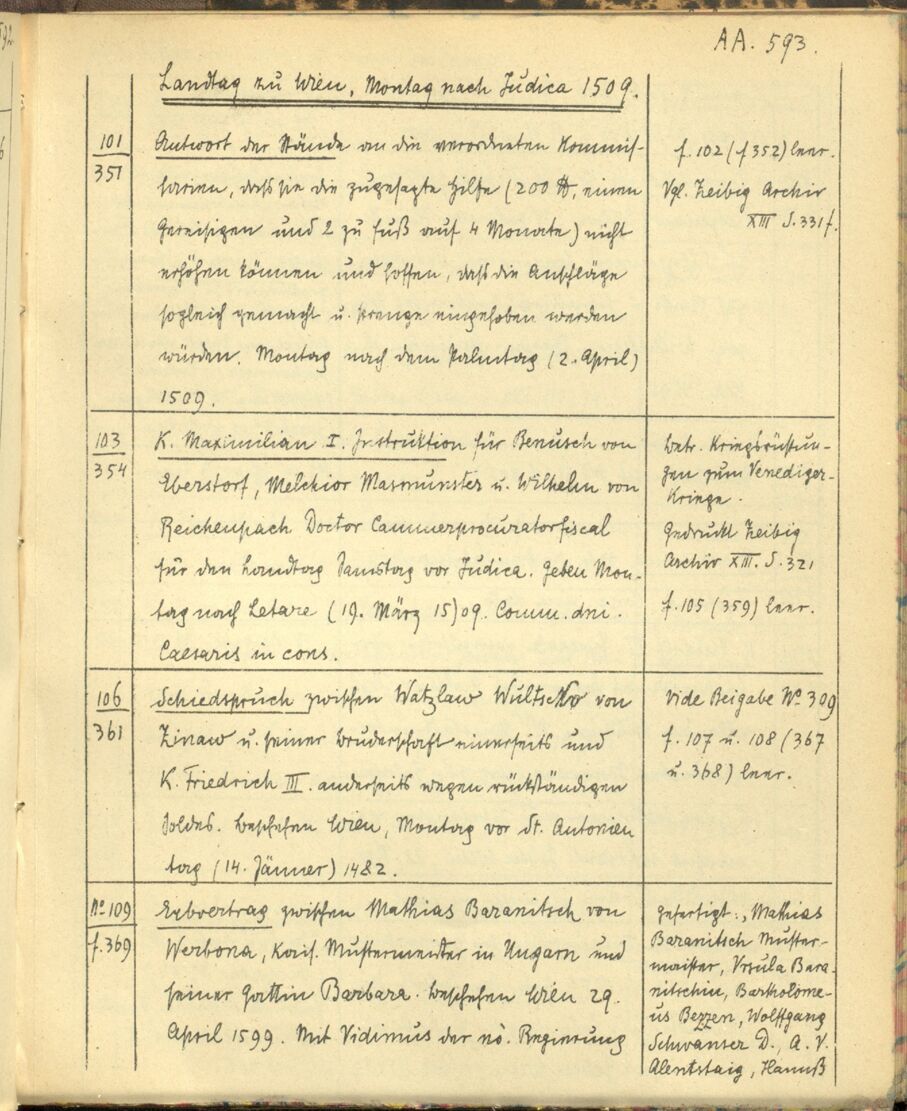 AA. 593.
Landtag zu Wien, Montag nach Judica 1509.
101
351
Antwort der Stände an die verordneten Kommis-
sarien, daß sie die zugesagte Hilfe (200 ℔, einen
Gereisigen und 2 zu Fuß auf 4 Monate) nicht
erhöhen können und hoffen, daß die Anschläge
sogleich gemacht u. strenge eingehoben werden
würden. Montag nach dem Palmtag (2. April)
1509.
f. 102 (f 352) leer.
Vgl. Zeibig Archiv
XIII S. 331f.
103
354
K. Maximilian I. Instruktion für Benusch von
Eberstorf, Melchior Masmunster u. Wilhelm von
Reichenpach Doctor Cammerprocuratorfiscal
für den Landtag Samstag vor Judica. Geben Mon-
tag nach Letare (19. März 15)09. Comm. dni.
Caesaris in cons.
betr. Kriegsrüstun-
gen zum Venediger-
kriege.
Gedruckt Zeibig
Archiv XIII. S. 321
f. 105 (359) leer.
106
361
Schiedspruch zwischen Watzlaw Wultschko von
Zinaw u. seiner Bruderschaft einerseits und
K. Friedrich III. anderseits wegen rückständigen
Soldes. Beschehen Wien, Montag vor St. Antonien
tag (14. Jänner) 1482.
vide Beigabe No 309
f. 107 u. 108 (367
u. 368) leer.
No 109
f. 369
Erbvertrag zwischen Mathias Baranitsch von
Werbona, Kais. Mustermeister in Ungarn und
seiner Gattin Barbara. Beschehen Wien 29.
April 1599. Mit Vidimus der nö. Regierung
gefertigt:, Mathias
Baranitsch Muster-
maister, Vrsula Bara-
nitschin, Bartholome-
us Bezzen, Wolffgang
Schwanser D., A. V.
Alentstaig, Hannß